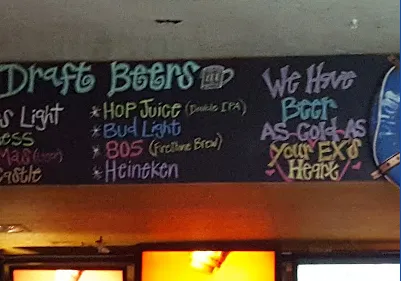 Draft Beers
s Light
ess
mas (Lager)
astle
* Hop Juice (Double IPA)
* Bud Light
* 805 (Firestone Brew)
* Heineken
We Have
Beer
AS Cold AS
Your EX's
Heart